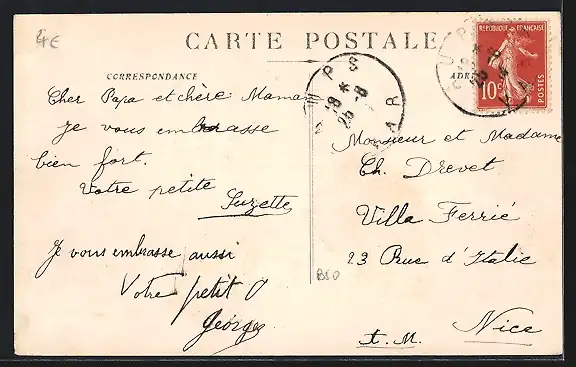 4€
CARTE POSTALE
CORRESPONDANCE
Cher Papa et chère Maman
Je vous embrasse
bien fort.
Votre petite
Suzette
Je vous embrasse aussi
Votre petit
Georges
REPUBLIQUE FRANÇAISE
10c
POSTES
Monsieur et Madame
Ch. Drevet
Villa Ferrié
23 Rue d'Italie
Nice
A. M.